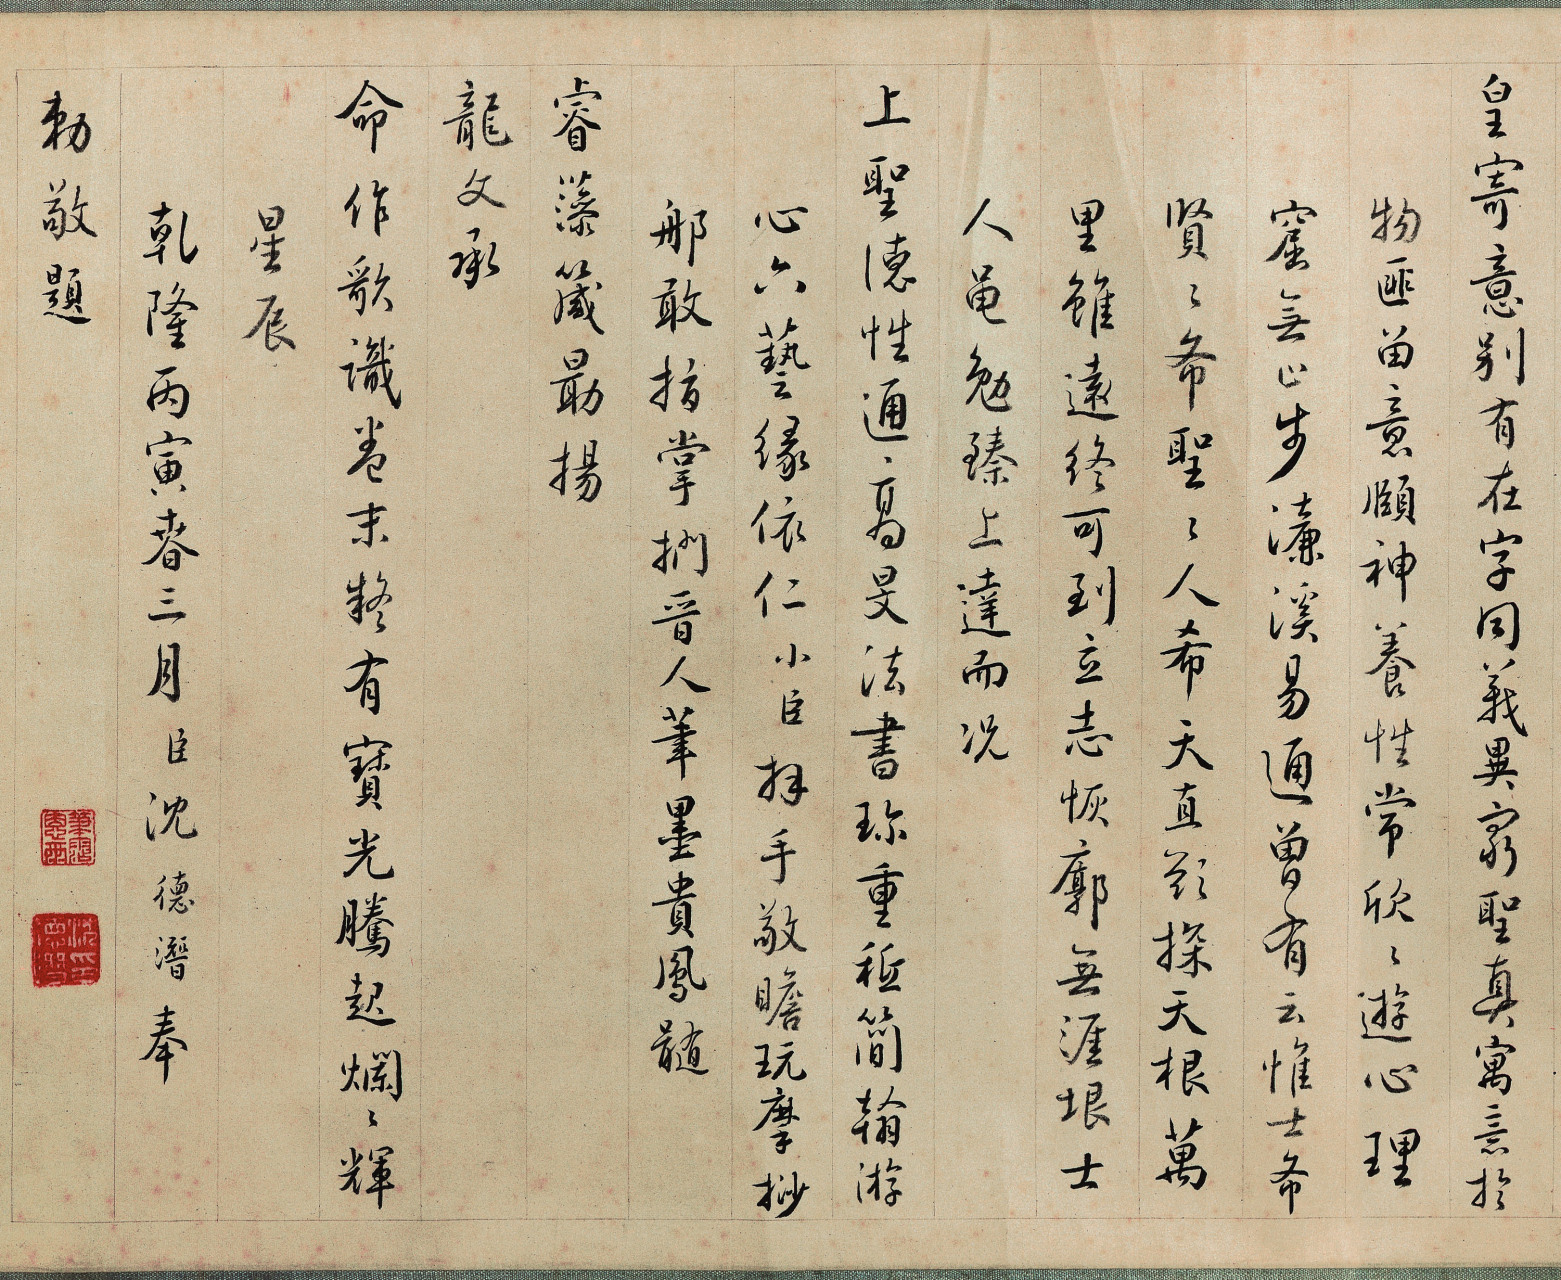 皇寄意別有在字同義異家聖真寓意於
物匪留意頤神養性常欣〻遊心理
窟無止步濂溪易通曽有云惟士希
賢〻希聖〻人希天直欲探天根萬
里雖遠終可到立志恢廓無涯垠士
人黽勉臻上達而况
上聖德性通高旻法書珎重秪簡翰游
心六藝緣依仁小臣拜手敬瞻玩摩挱
那敢指掌捫晉人筆墨貴鳳髓
睿藻箴勗揚
龍文承
命作歌識卷末疑有寶光騰起爛〻輝
星辰
乾隆丙寅春三月臣沈德潛奉
勅敬題